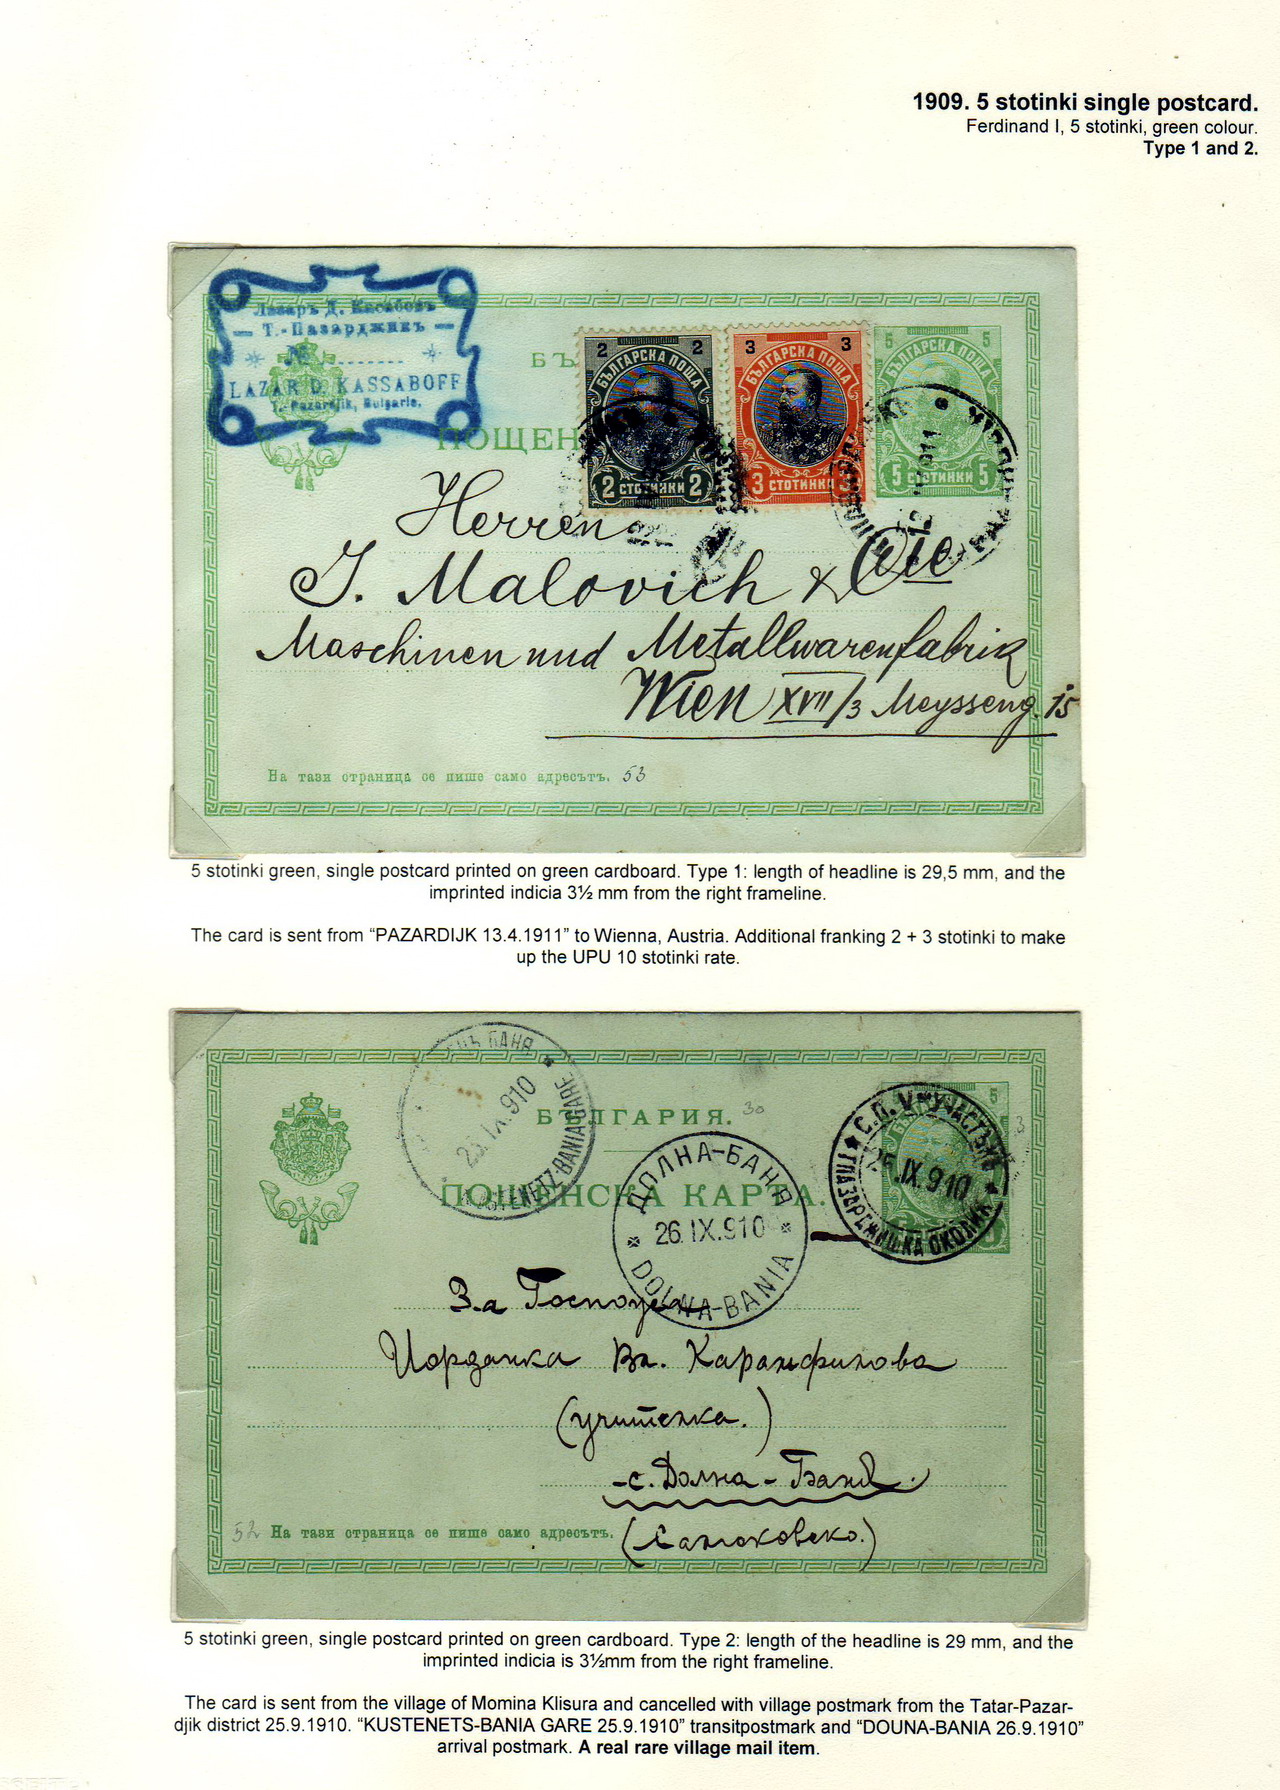 1909. 5 stotinki single postcard.
Ferdinand I, 5 stotinki, green colour.
Type 1 and 2.
Лазаръ Д. Касабовъ
Т.-Пазарджикъ
№
LAZAR D. KASSABOFF
T.-Pazardjik, Bulgarie.
БЪ
ПОЩЕН
2 2
БЪЛГАРСКА ПОЩА
2 СТОТИНКИ 2
3 3
БЪЛГАРСКА ПОЩА
3 СТОТИНКИ 3
5 5
БЪЛГАРСКА ПОЩА
5 СТОТИНКИ 5
Herren
J. Malovich & Cie
Maschinen und Metallwarenfabrik
Wien XVII/3 Meysseng. 15
На тази страница се пише само адресътъ. 53
5 stotinki green, single postcard printed on green cardboard. Type 1: length of headline is 29,5 mm, and the
imprinted indicia 3½ mm from the right frameline.
The card is sent from “PAZARDIJK 13.4.1911” to Wienna, Austria. Additional franking 2 + 3 stotinki to make
up the UPU 10 stotinki rate.
БАНЯ
25.IX.910
TENETZ-BANIA GARE
БЪЛГАРИЯ. 30
ПОЩЕНСКА КАРТА.
ДОЛНА-БАНЯ
26.IX.910
DOLNA-BANIA
5
С.П. V УЧАСТЪКЪ
25.IX.910
Т ПАЗАРДЖИШКА ОКОЛИЯ
3
За Госпожа
Йорданка Вл. Каранфилова
(учителка.)
-с. Долна-Баня.
(Самоковско.)
52 На тази страница се пише само адресътъ.
5 stotinki green, single postcard printed on green cardboard. Type 2: length of the headline is 29 mm, and the
imprinted indicia is 3½mm from the right frameline.
The card is sent from the village of Momina Klisura and cancelled with village postmark from the Tatar-Pazar-
djik district 25.9.1910. “KUSTENETS-BANIA GARE 25.9.1910” transitpostmark and “DOUNA-BANIA 26.9.1910”
arrival postmark. A real rare village mail item.